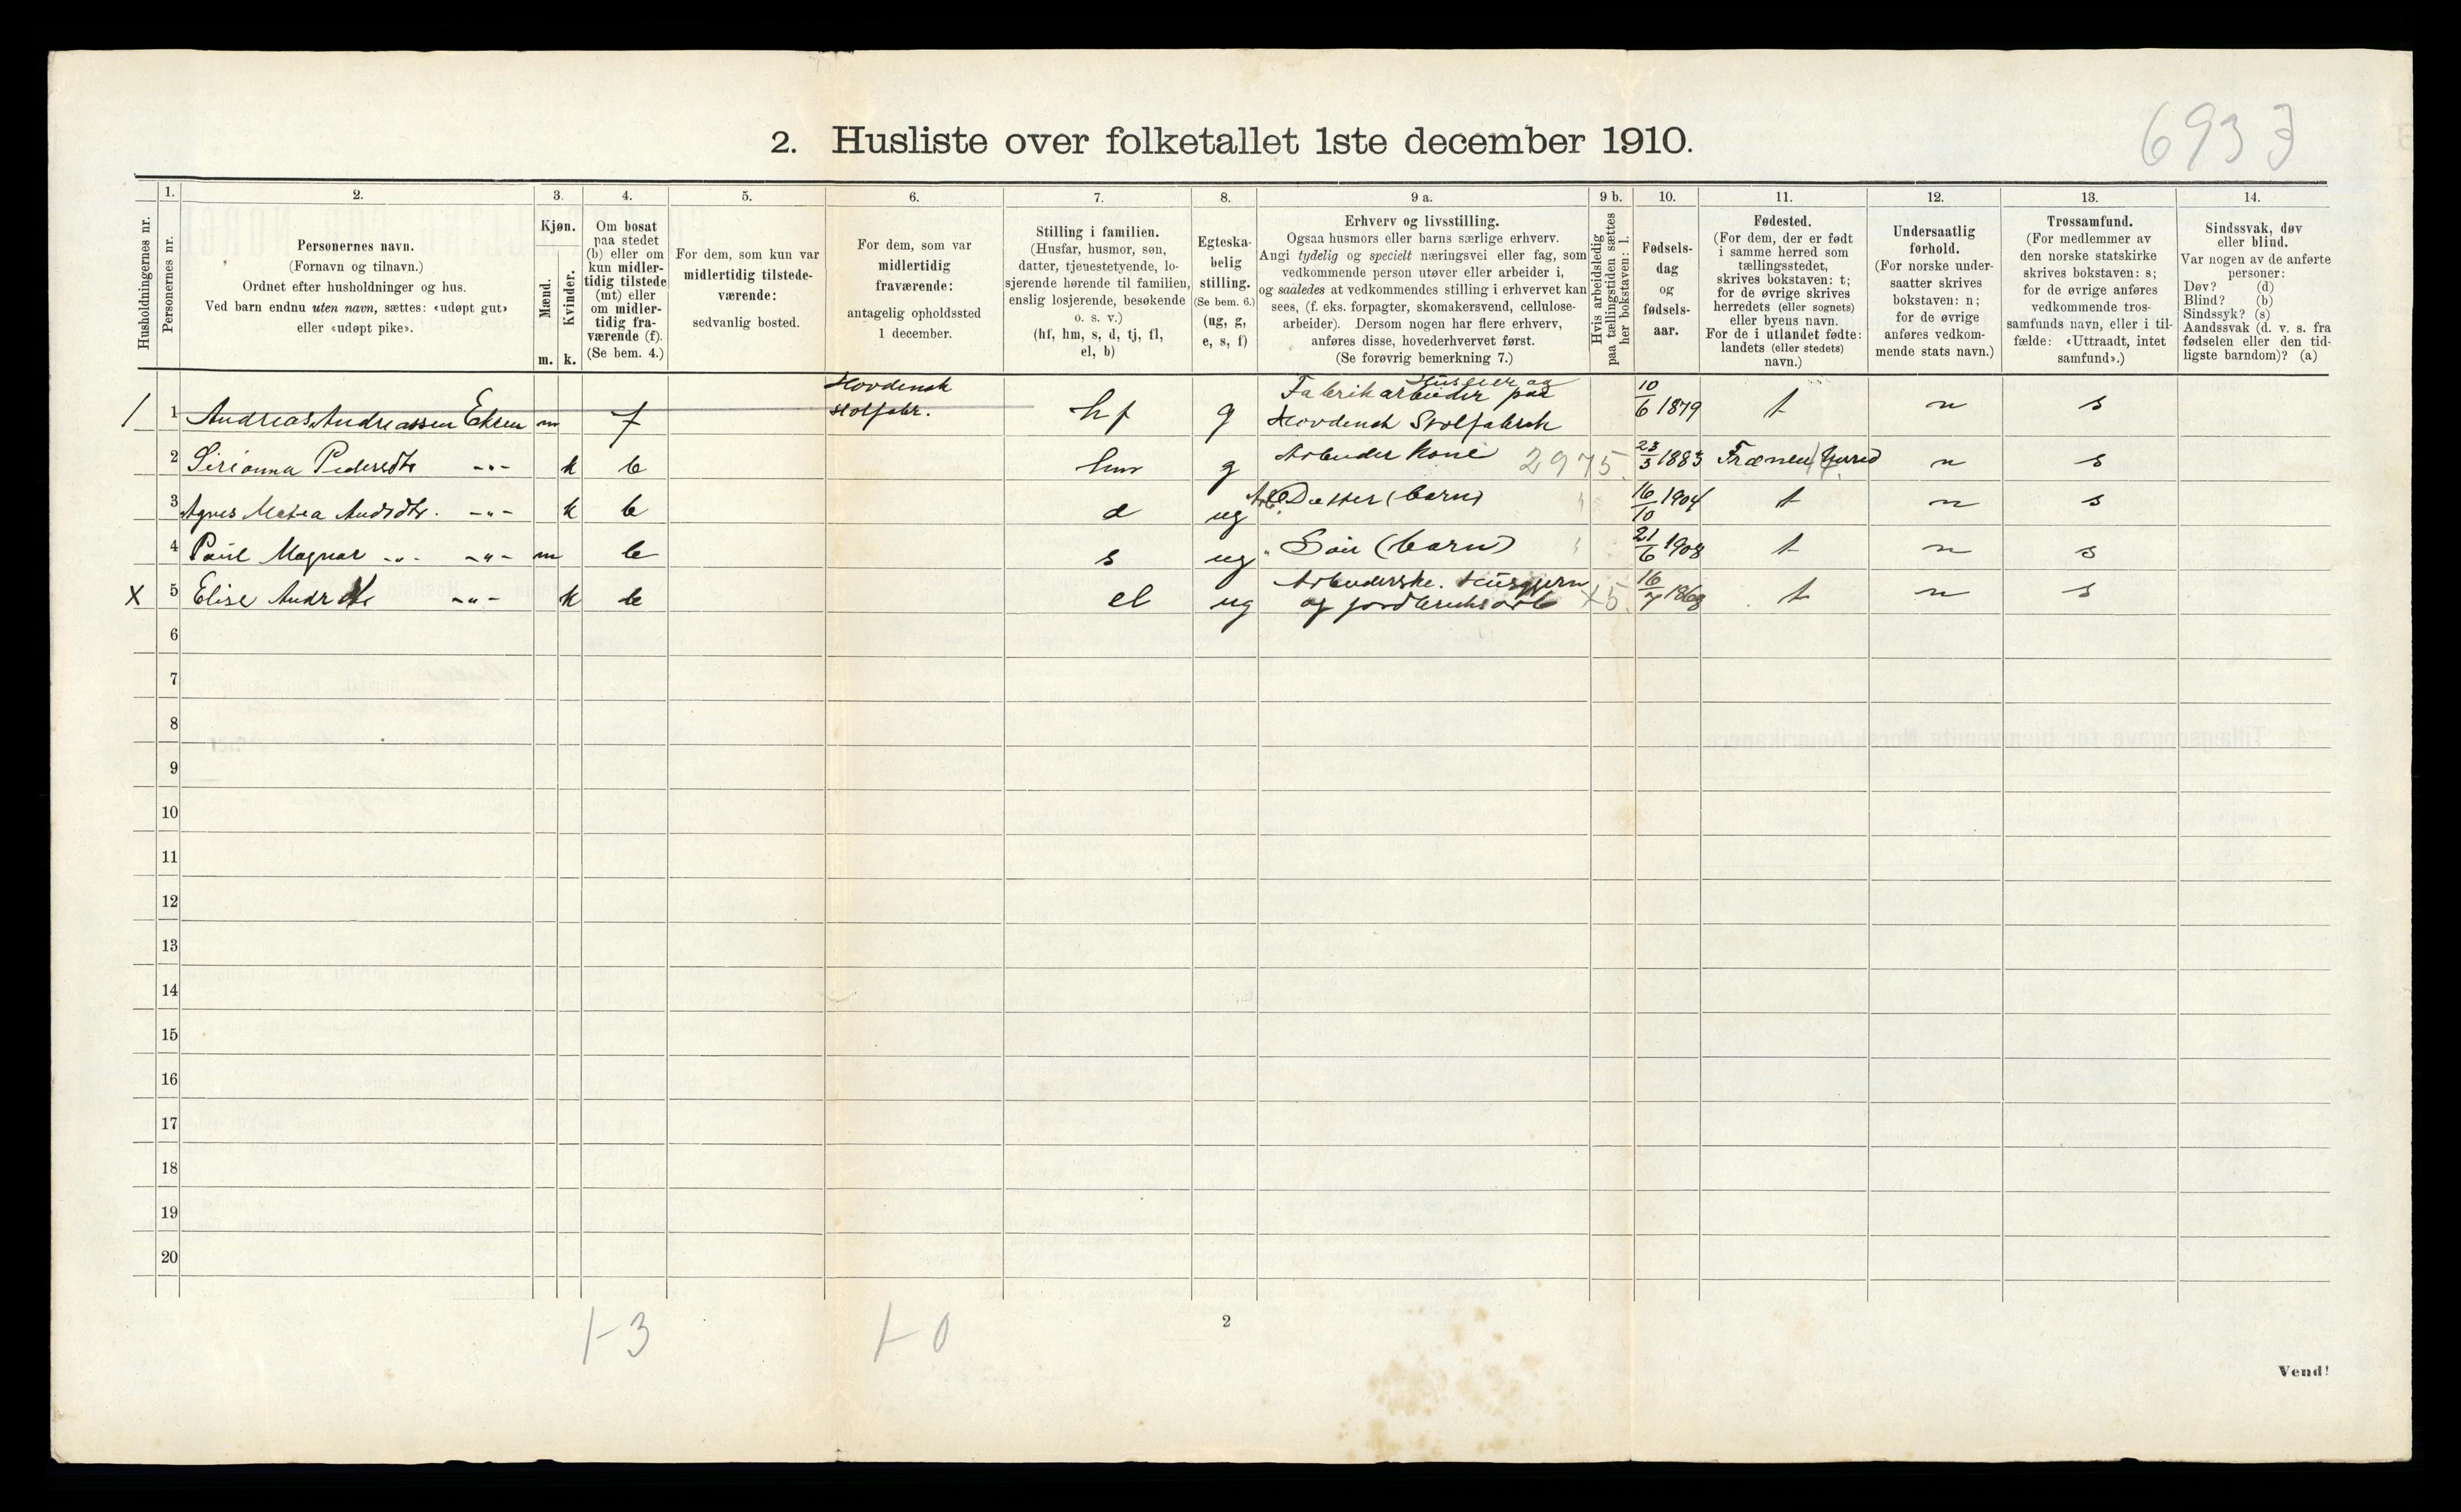 6933
2. Husliste over folketallet 1ste december 1910.
Husholdningernes nr.
1.
Personernes nr.
2.
Personernes navn.
(Fornavn og tilnavn.)
Ordnet efter husholdninger og hus.
Ved barn endnu uten navn, sættes: «udøpt gut»
eller «udøpt pike».
3.
Kjøn.
Mænd.
Kvinder.
m. k.
4.
Om bosat
paa stedet
(b) eller om
kun midler-
tidig tilstede
(mt) eller
om midler-
tidig fra-
værende (f).
(Se bem. 4.)
5.
For dem, som kun var
midlertidig tilstede-
værende:
sedvanlig bosted.
6.
For dem, som var
midlertidig
fraværende:
antagelig opholdssted
1 december.
7.
Stilling i familien.
(Husfar, husmor, søn,
datter, tjenestetyende, lo-
sjerende hørende til familien,
enslig losjerende, besøkende
o. s. v.)
(hf, hm, s, d, tj, fl,
el, b)
8.
Egteska-
belig
stilling.
(Se bem. 6.)
(ug, g,
e, s, f)
9 a.
Erhverv og livsstilling.
Ogsaa husmors eller barns særlige erhverv.
Angi tydelig og specielt næringsvei eller fag, som
vedkommende person utøver eller arbeider i,
og saaledes at vedkommendes stilling i erhvervet kan
sees, (f. eks. forpagter, skomakersvend, cellulose-
arbeider). Dersom nogen har flere erhverv,
anføres disse, hovederhvervet først.
(Se forøvrig bemerkning 7.)
9 b.
Hvis arbeidsledig
paa tællingstiden sættes
her bokstaven: l.
10.
Fødsels-
dag
og
fødsels-
aar.
11.
Fødested.
(For dem, der er født
i samme herred som
tællingsstedet,
skrives bokstaven: t;
for de øvrige skrives
herredets (eller sognets)
eller byens navn.
For de i utlandet fødte:
landets (eller stedets)
navn.)
12.
Undersaatlig
forhold.
(For norske under-
saatter skrives
bokstaven: n;
for de øvrige
anføres vedkom-
mende stats navn.)
13.
Trossamfund.
(For medlemmer av
den norske statskirke
skrives bokstaven: s;
for de øvrige anføres
vedkommende tros-
samfunds navn, eller i til-
fælde: «Uttraadt, intet
samfund».)
14.
Sindssvak, døv
eller blind.
Var nogen av de anførte
personer:
Døv? (d)
Blind? (b)
Sindssyk? (s)
Aandssvak (d. v. s. fra
fødselen eller den tid-
ligste barndom)? (a)
Hovdenak
Huseier og
1 Andreas Andreassen m f Stolfabr. hf g Fabrikarbeider paa 10/6 1879 t n s
Hovdenak Stolfabrik
2 Pedersdtr -"- k b hm g Arbeider Kone 2975 23/3 1883 Frænen Herred n s
3 Agnes Andrdtr. -"- k b d ug Datter (barn) 16/10 1904 t n s
4 Paul Magnar -"- -"- m b s ug " Søn (barn) 21/6 1908 t n s
X 5 Elise -"- k b el ug Arbeiderske. X5. 16/7 1868 t n s
og jordbruksarb
6
7
8
9
10
11
12
13
14
15
16
17
18
19
20
1-3
1-0
2
Vend!